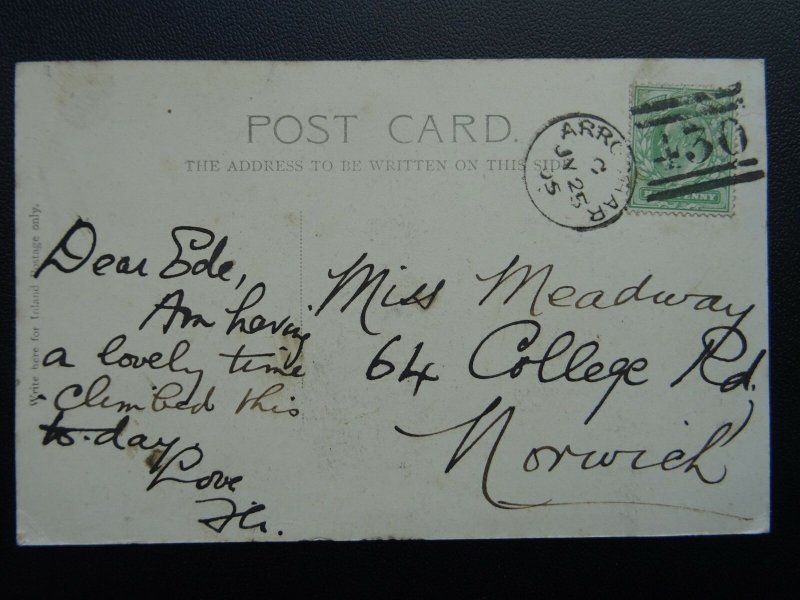 POST CARD.
THE ADDRESS TO BE WRITTEN ON THIS SIDE
Write here for Inland Postage only.
ARRO HAR
JN 25
05
436
Dear Ede,
Am having
a lovely time
- climbed this
to-day.
Love
Miss Meadway
64 College Rd.
Norwich